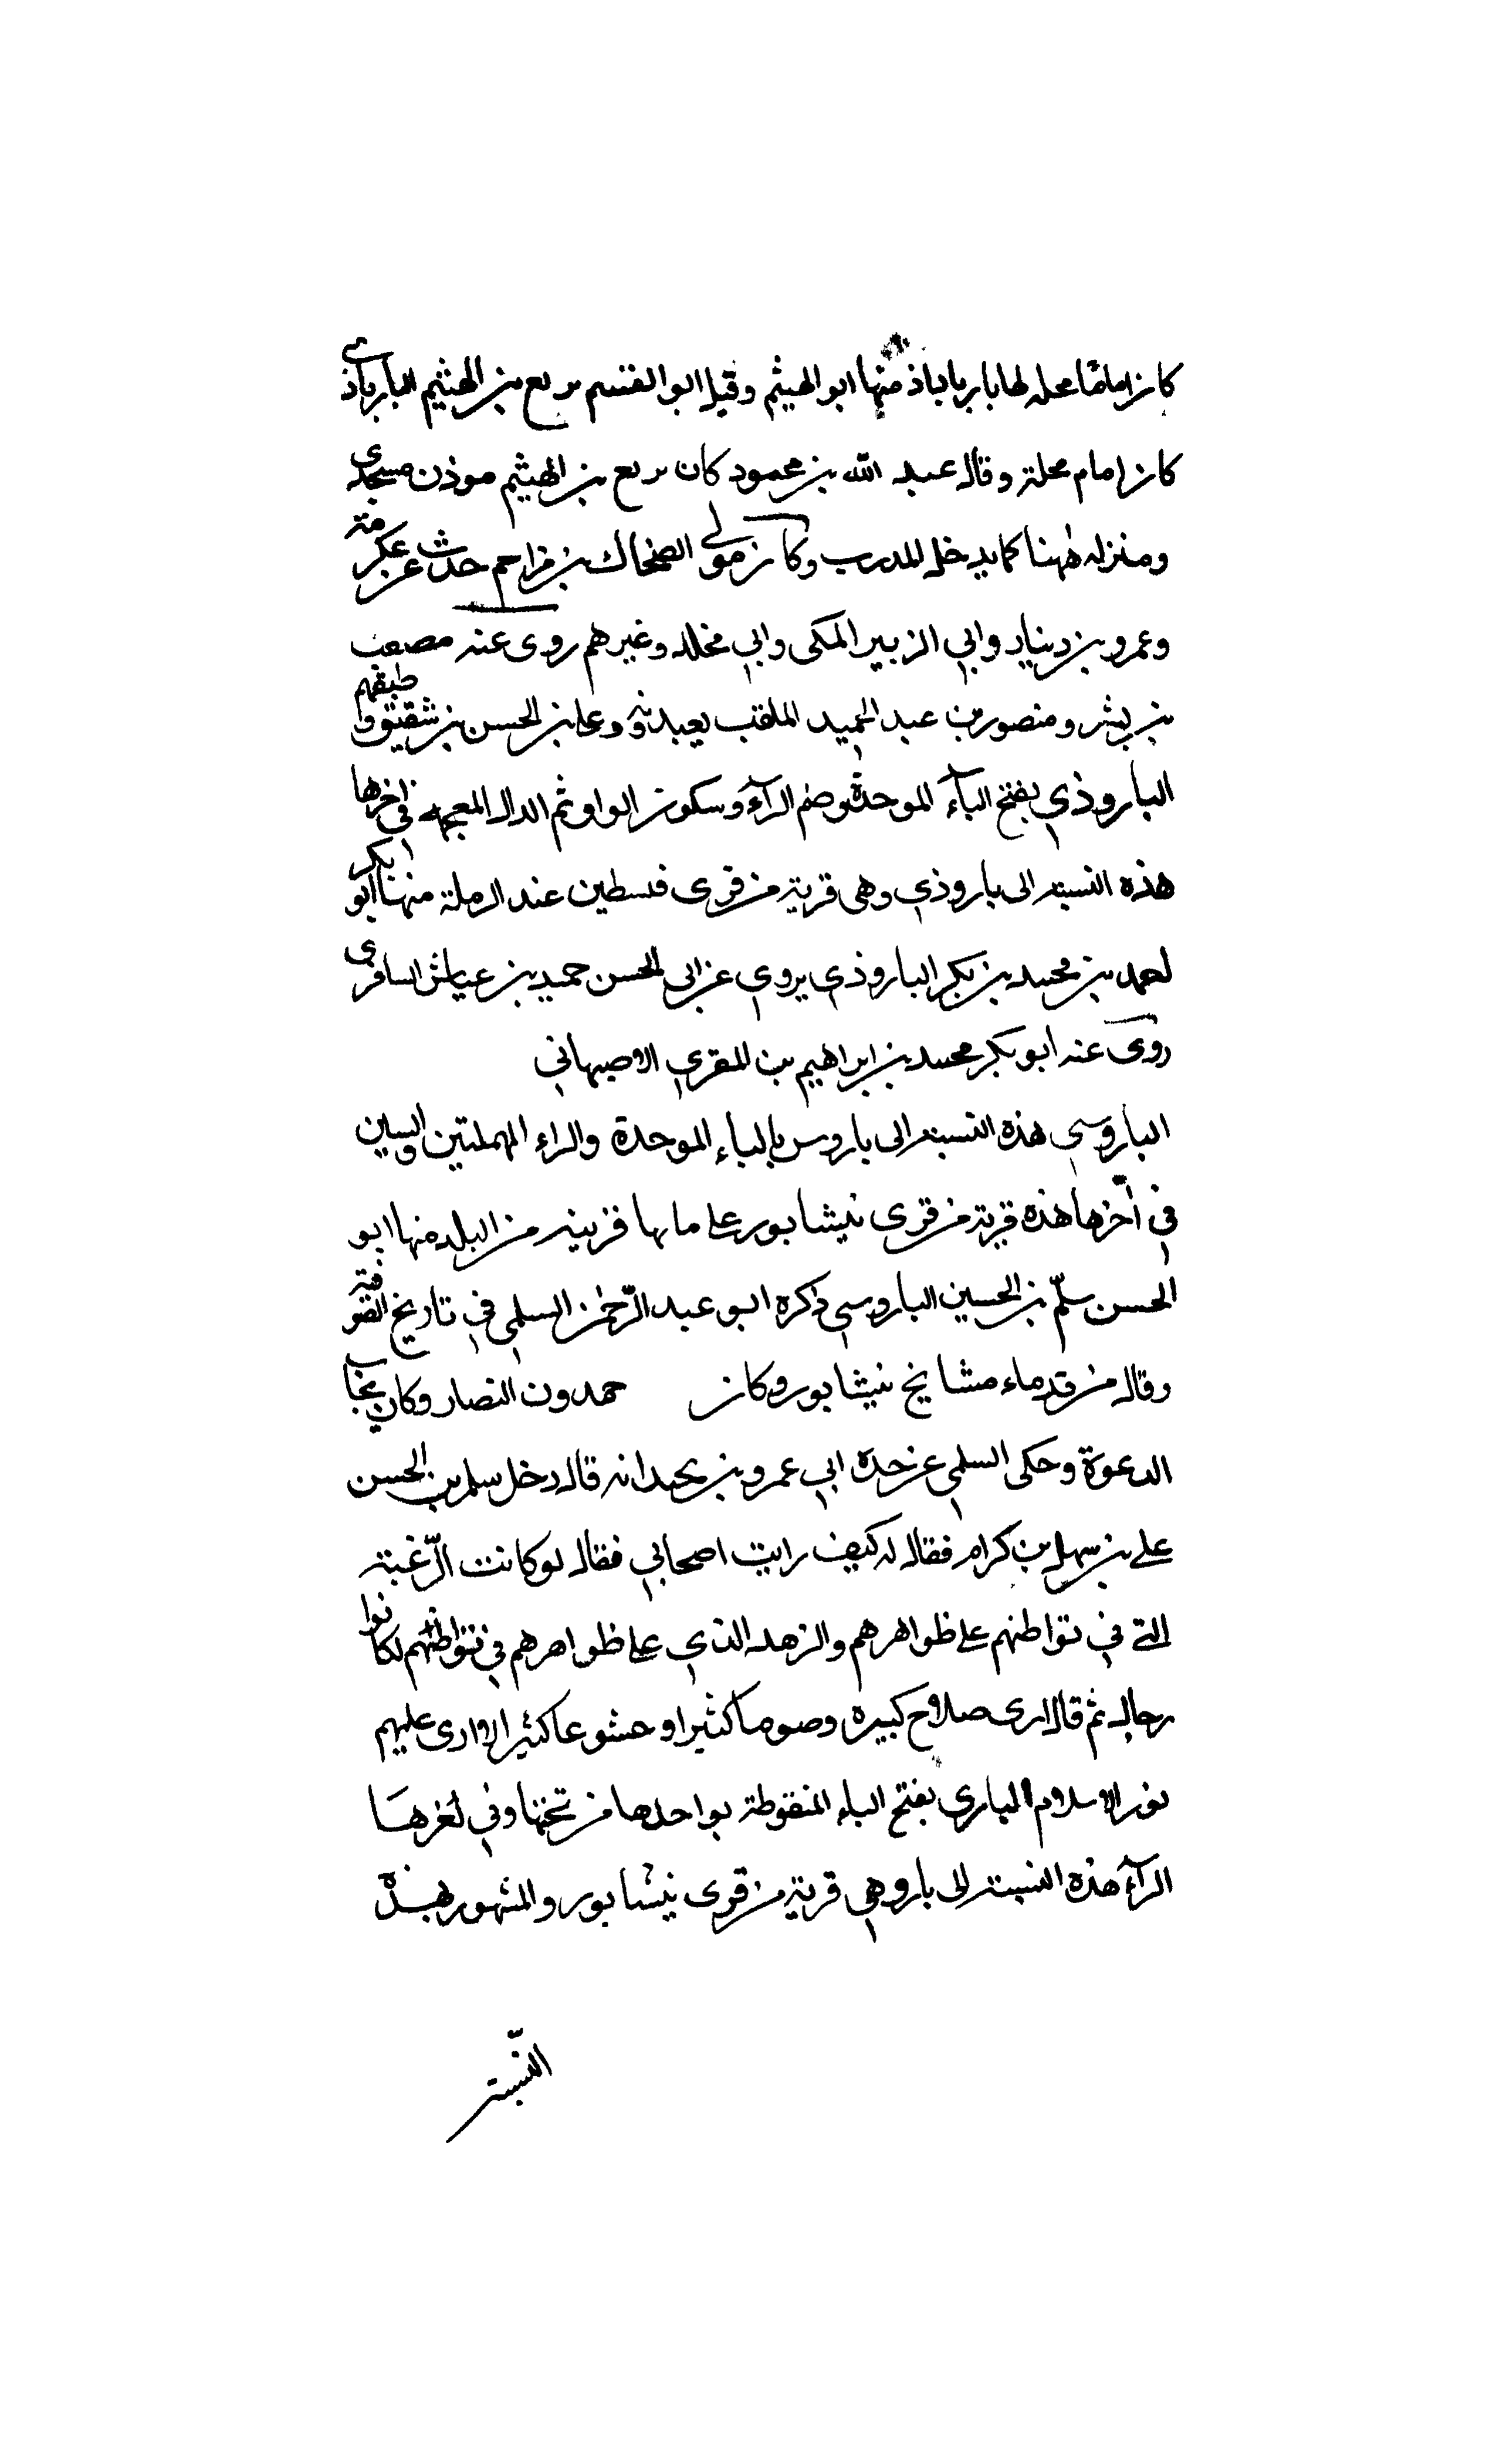 كان اماما محله لها بارباباذ منها ابو الهيثم وقيل ابو القسم بزيع بن الهيثم البارباذي
كان امام محلة وقال عبد الله بن محمود كان بزيع بن الهيثم موذن مسجدى
ومنزله ههنا كما يدخل المدرب وكان مولى الضحاك بن مزاحم حدث عن عكرمة
وعمرو بن دينار وابي الزبير المكى وابي مخلد وغيرهم روى عنه مصعب
بن بشر ومنصور بن عبد الحميد الملقب بعبدويه وعلى بن الحسن بن شقيق وطبقتهم
الباروذي بفتح الباء الموحدة وضم الرآء وسكون الواو ثم الدال المعجمة في اخرها
هذه النسبة الى باروذي وهى قرية من قرى فلسطين عند الرملة منها ابو بكر
احمد بن محمد بن بكر الباروذي يروي عن ابى الحسن حميد بن عياش السافرى
روى عنه ابو بكر محمد بن ابراهيم بن المقري الاصبهاني
الباروسي هذه النسبة الى باروس بالباء الموحدة والراء المهملتين والسين
في آخرها هذه قرية من قرى نيشابور على بابها قريبة من البلد منها ابو
الحسن سلم بن الحسين الباروسي ذكره ابو عبد الرحمن السلمي في تاريخ الصوفية
وقال من قدماء مشايخ نيشابور وكان حمدون النصار وكان مجاب
الدعوة وحكى السلمي عن جده ابي عمرو بن نجيد انه قال دخل سلم بن الحسن
على بن سهل بن كرام فقال له كيف رايت اصحابي فقال لو كانت الرّغبة
التى في بواطنهم على ظواهرهم والزهد الذي على ظواهرهم في بواطنهم لكانوا
رجال ثم قال ارى صلاح كبيره وصوما كثيرا وخشوعا كثير الا ارى عليهم
نور الاسلام الباري بفتح الباء المنقوطة بواحدها من تحتها وفي اخرها
الرآء هذه النسبة الى بار وهي قرية من قرى نيشابور والمشهور بهذة
النّسبة